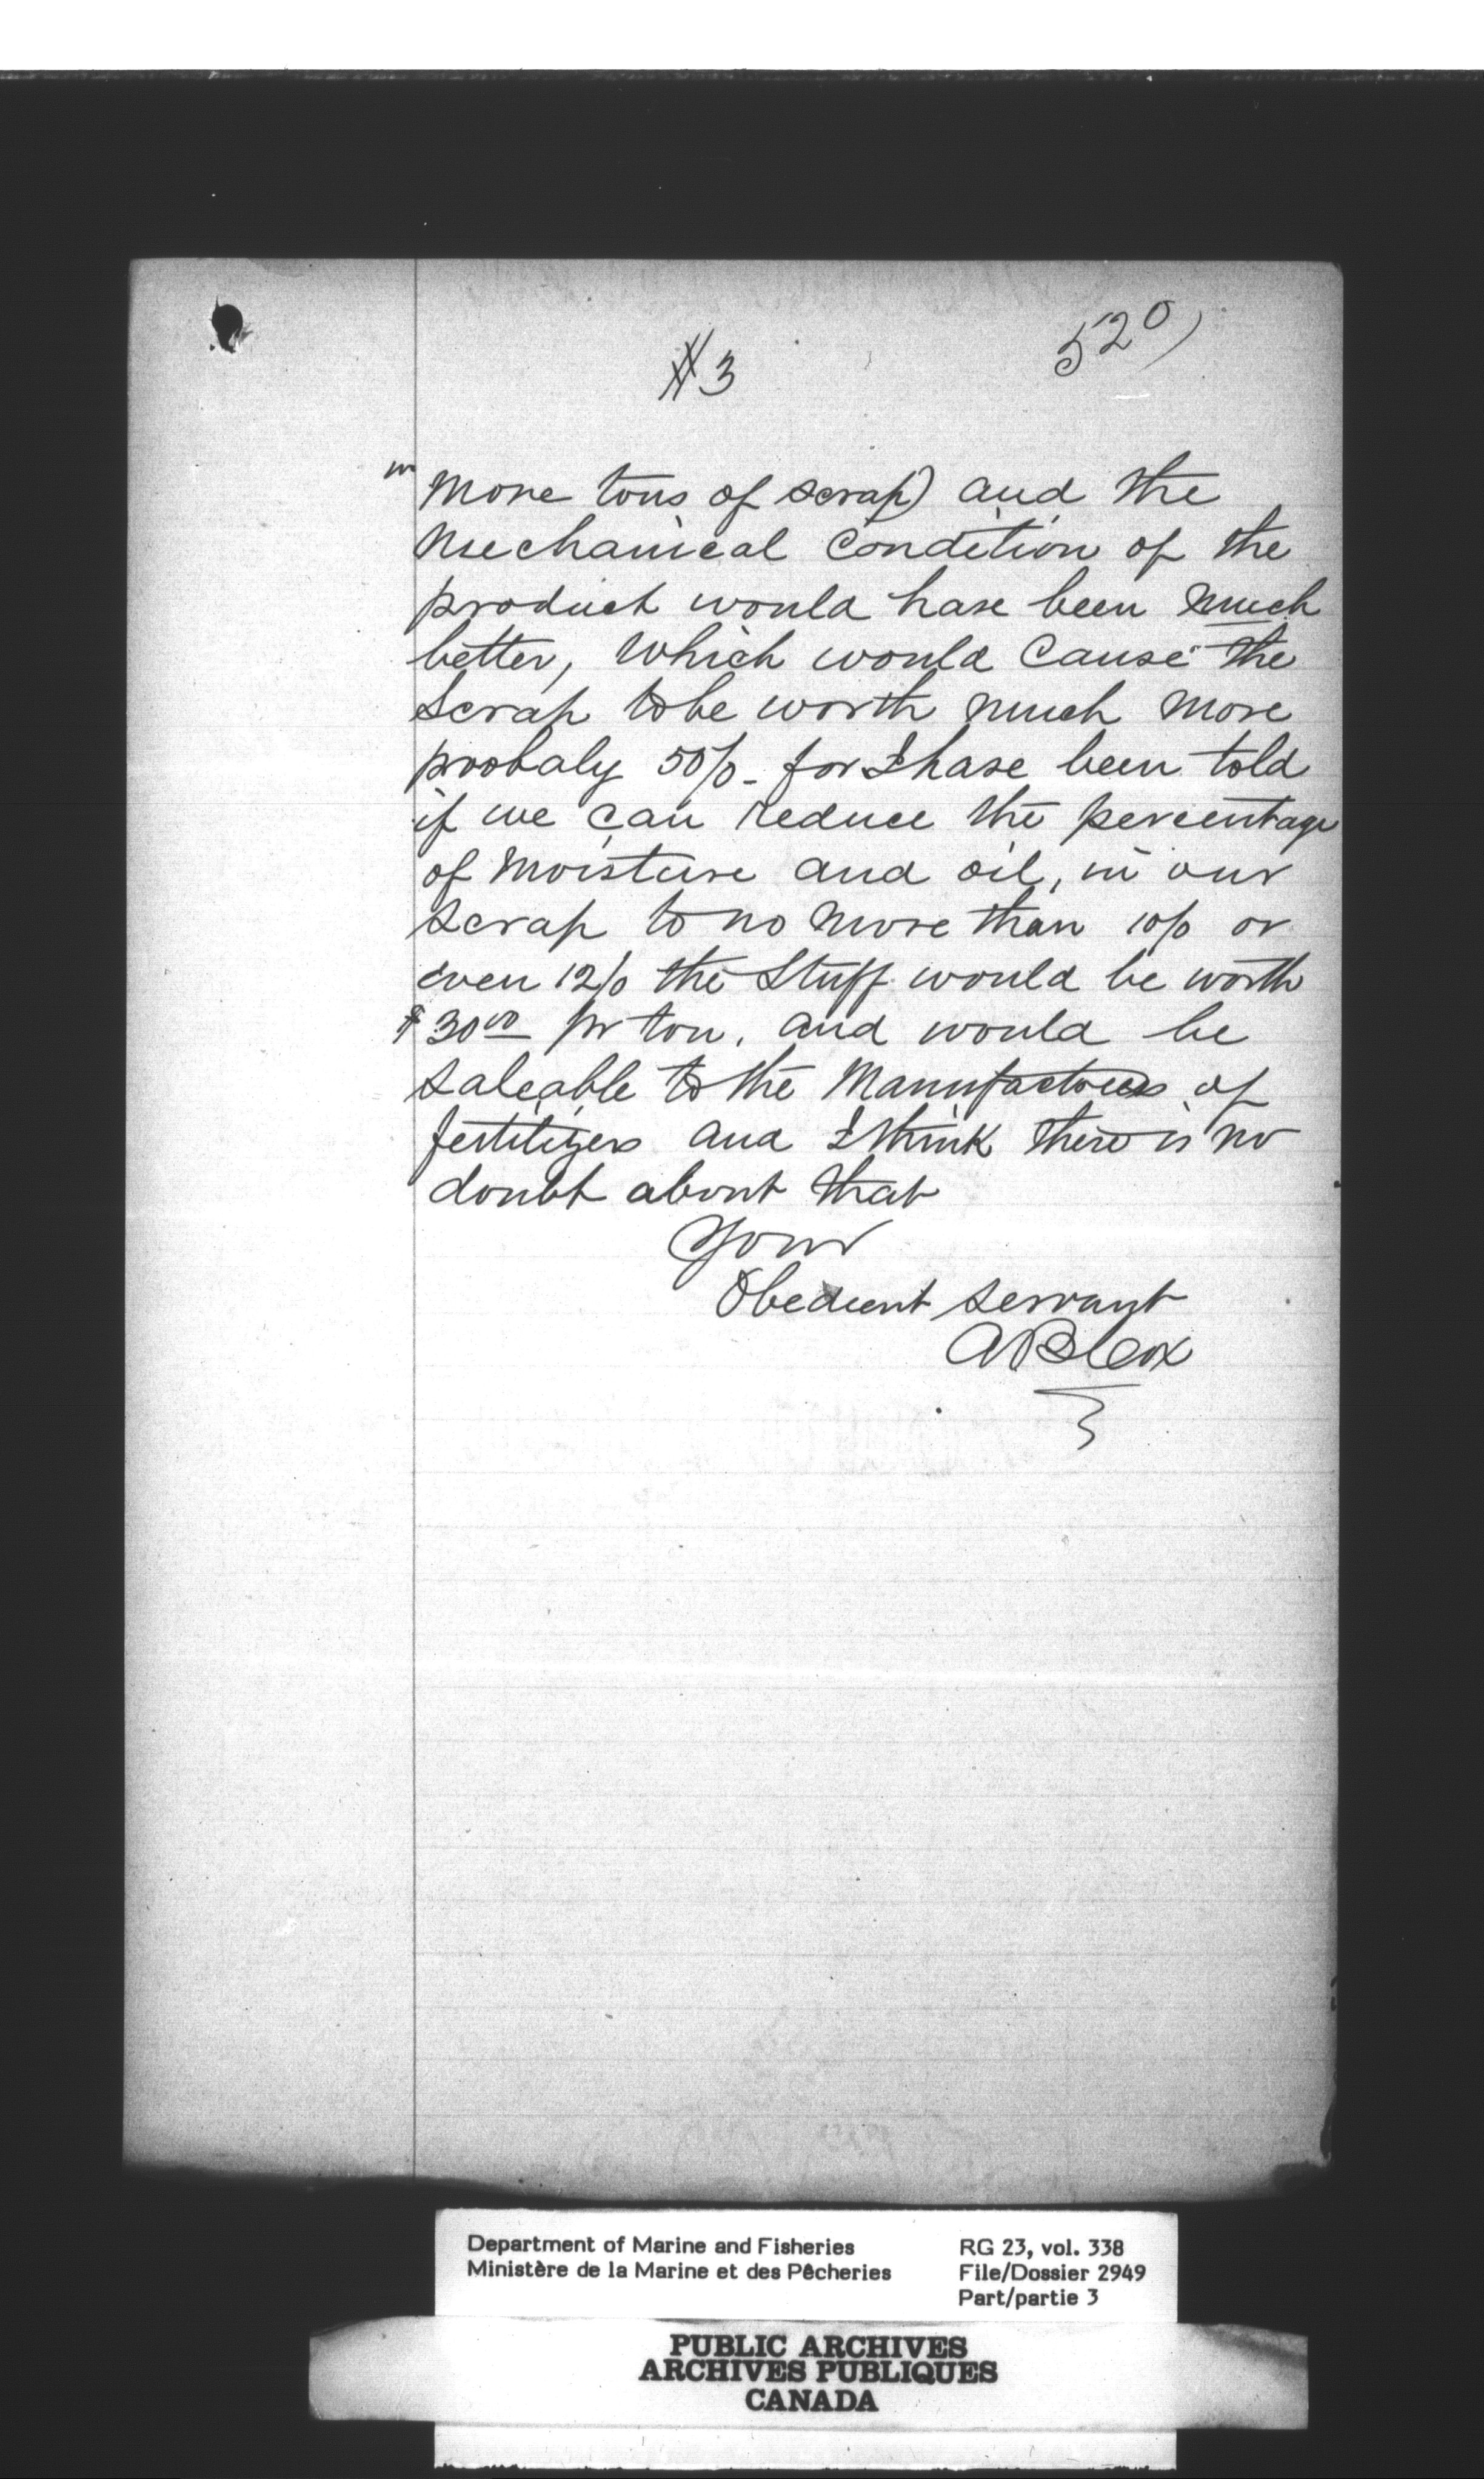 #3
520
more tons of scrap) and the
mechanical condition of the
product would have been much
better, which would cause the
scrap to be worth much more
probaly 50% - for I have been told
if we can reduce the percentage
of moisture and oil, in our
scrap to no more than 10% or
even 12% the stuff would be worth
$30.00 pr ton, and would be
saleable to the manufactures of
fertilizers and I think there is no
doubt about that
Your
Obedient servant
A B Cox
Department of Marine and Fisheries
Ministère de la Marine et des Pêcheries
RG 23, vol. 338
File/Dossier 2949
Part/partie 3
PUBLIC ARCHIVES
ARCHIVES PUBLIQUES
CANADA